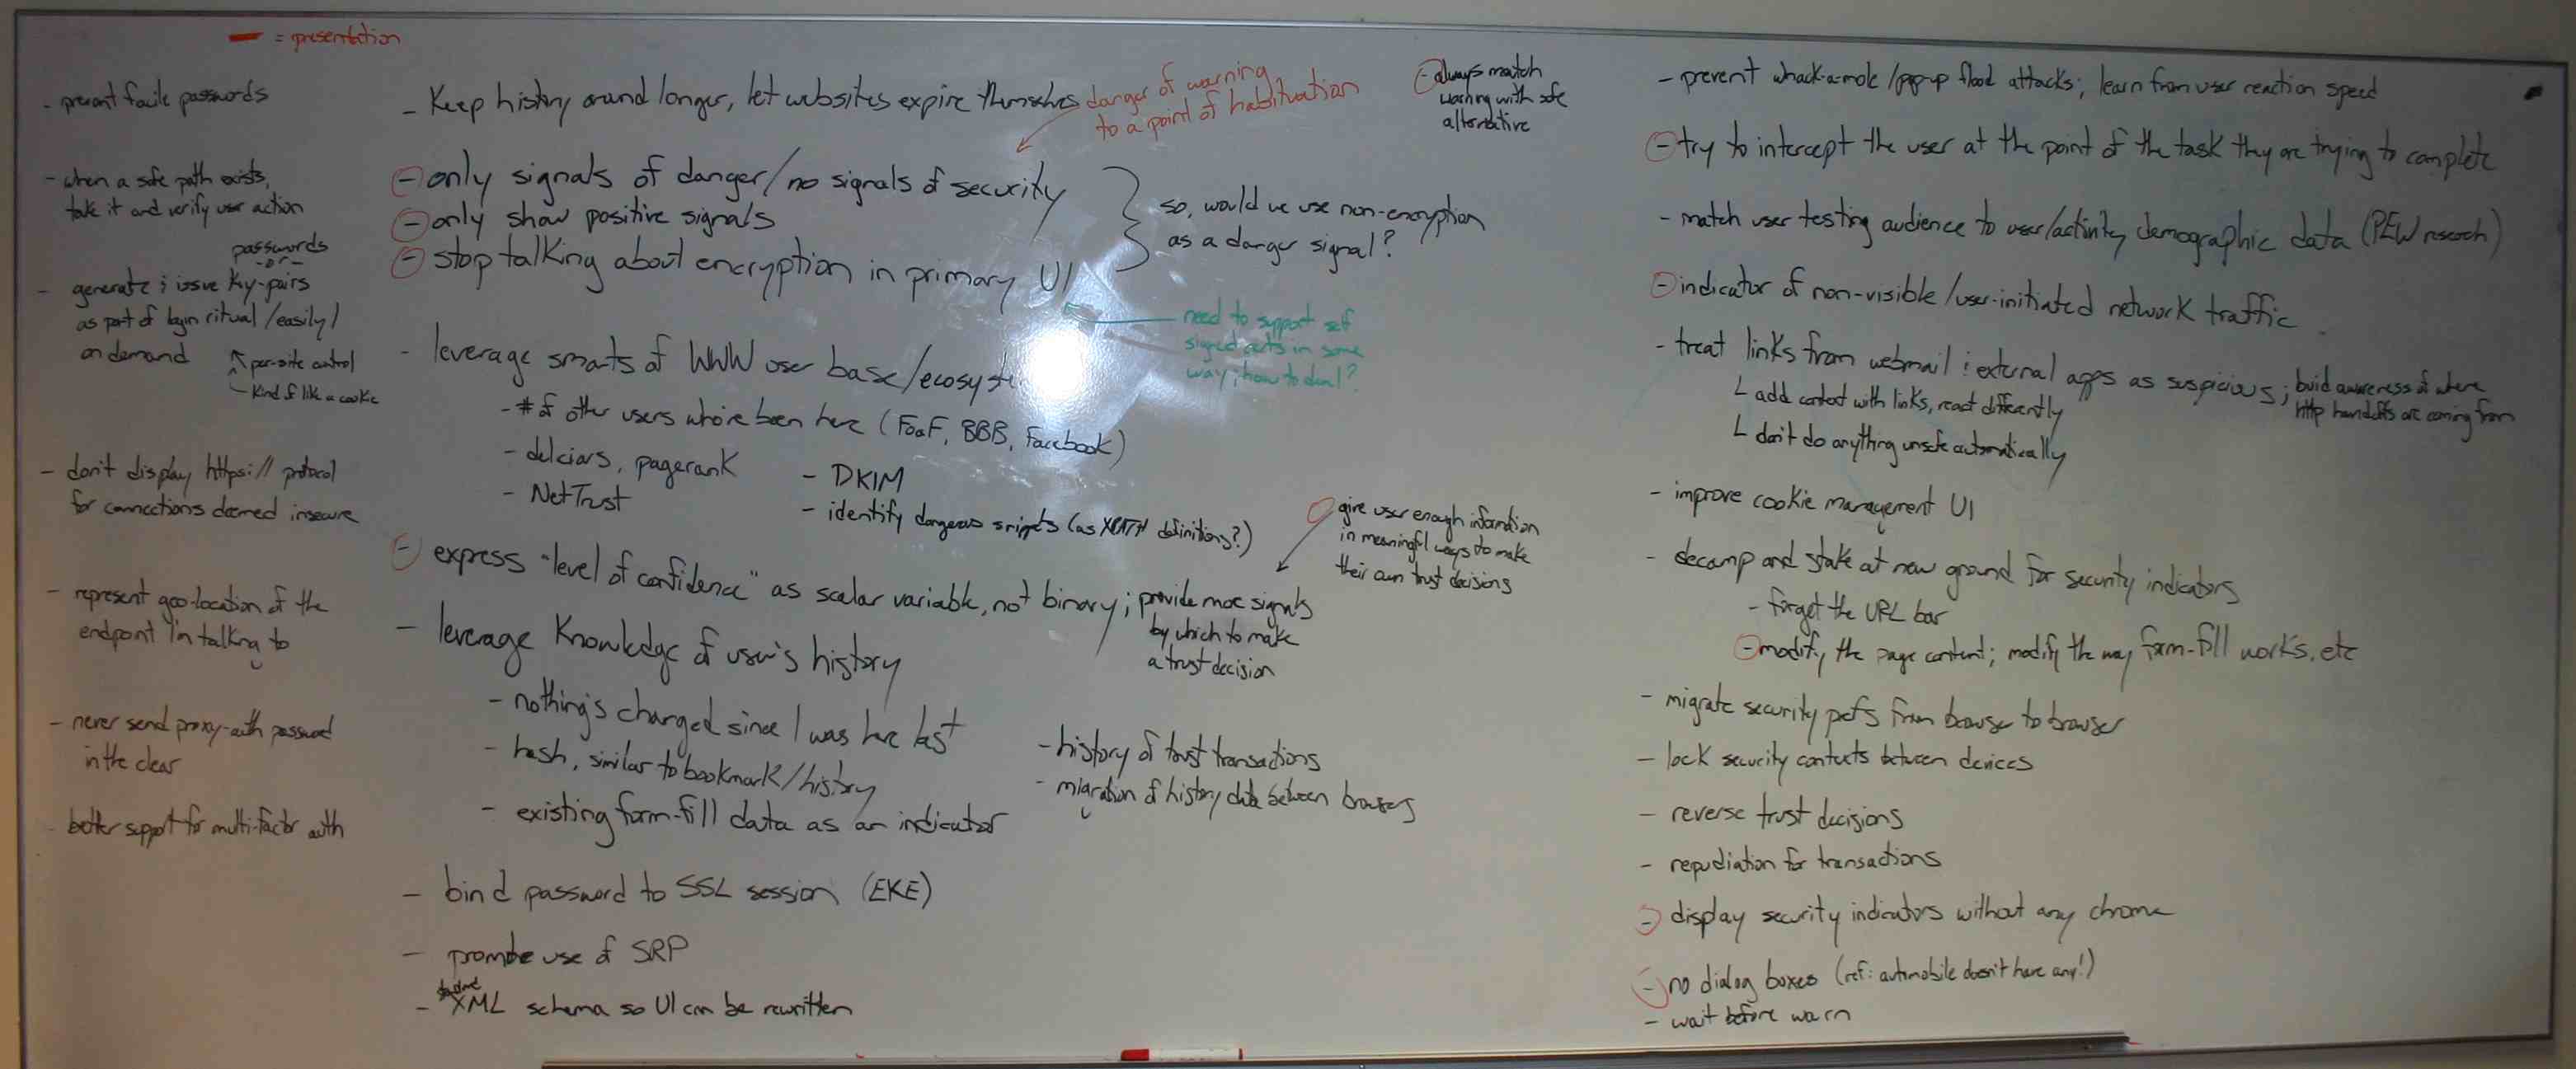 = presentation
- prevent facile passwords
- when a safe path exists,
take it and verify user action
passwords
-or-
- generate & issue key-pairs
as part of login ritual /easily/
on demand
per-site control
kind of like a cookie
- don't display https:// protocol
for connections deemed insecure
- represent geo-location of the
endpoint I'm talking to
- never send proxy-auth password
in the clear
- better support for multi-factor auth
- Keep history around longer, let websites expire themselves
danger of warning
to a point of habituation
- only signals of danger/no signals of security
- only show positive signals
- stop talking about encryption in primary UI
so, would we use non-encryption
as a danger signal?
need to support self
signed certs in some
way; how to deal?
- leverage smarts of WWW user base/ecosyste
- # of other users who've been here (FOAF, BBB, Facebook)
- delcious, pagerank
- NetTrust
- DKIM
- identify dangerous snippets (as XPATH definitions?)
- express "level of confidence" as scalar variable, not binary; provide more signals
by which to make
a trust decision
give user enough information
in meaningful ways to make
their own trust decisions
- leverage knowledge of user's history
- nothing's changed since I was here last
- hash, similar to bookmark/history
- existing form-fill data as an indicator
- history of trust transactions
- migration of history data between browsers
- bind password to SSL session (EKE)
- promote use of SRP
- XML schema so UI can be rewritten
- always match
warning with safe
alternative
- prevent whack-a-mole /pop-up flood attacks; learn from user reaction speed
- try to intercept the user at the point of the task they are trying to complete
- match user testing audience to user/activity demographic data (PEW research)
- indicator of non-visible/user-initiated network traffic
- treat links from webmail & external apps as suspicious; build awareness of where
http handoffs are coming from
add context with links, react differently
don't do anything unsafe automatically
- improve cookie management UI
- decamp and stake at new ground for security indicators
- forget the URL bar
- modify the page content; modify the way form-fill works, etc
- migrate security prefs from browser to browser
- lock security contexts between devices
- reverse trust decisions
- repudiation for transactions
- display security indicators without any chrome
- no dialog boxes (ref: automobile doesn't have any!)
- wait before warn